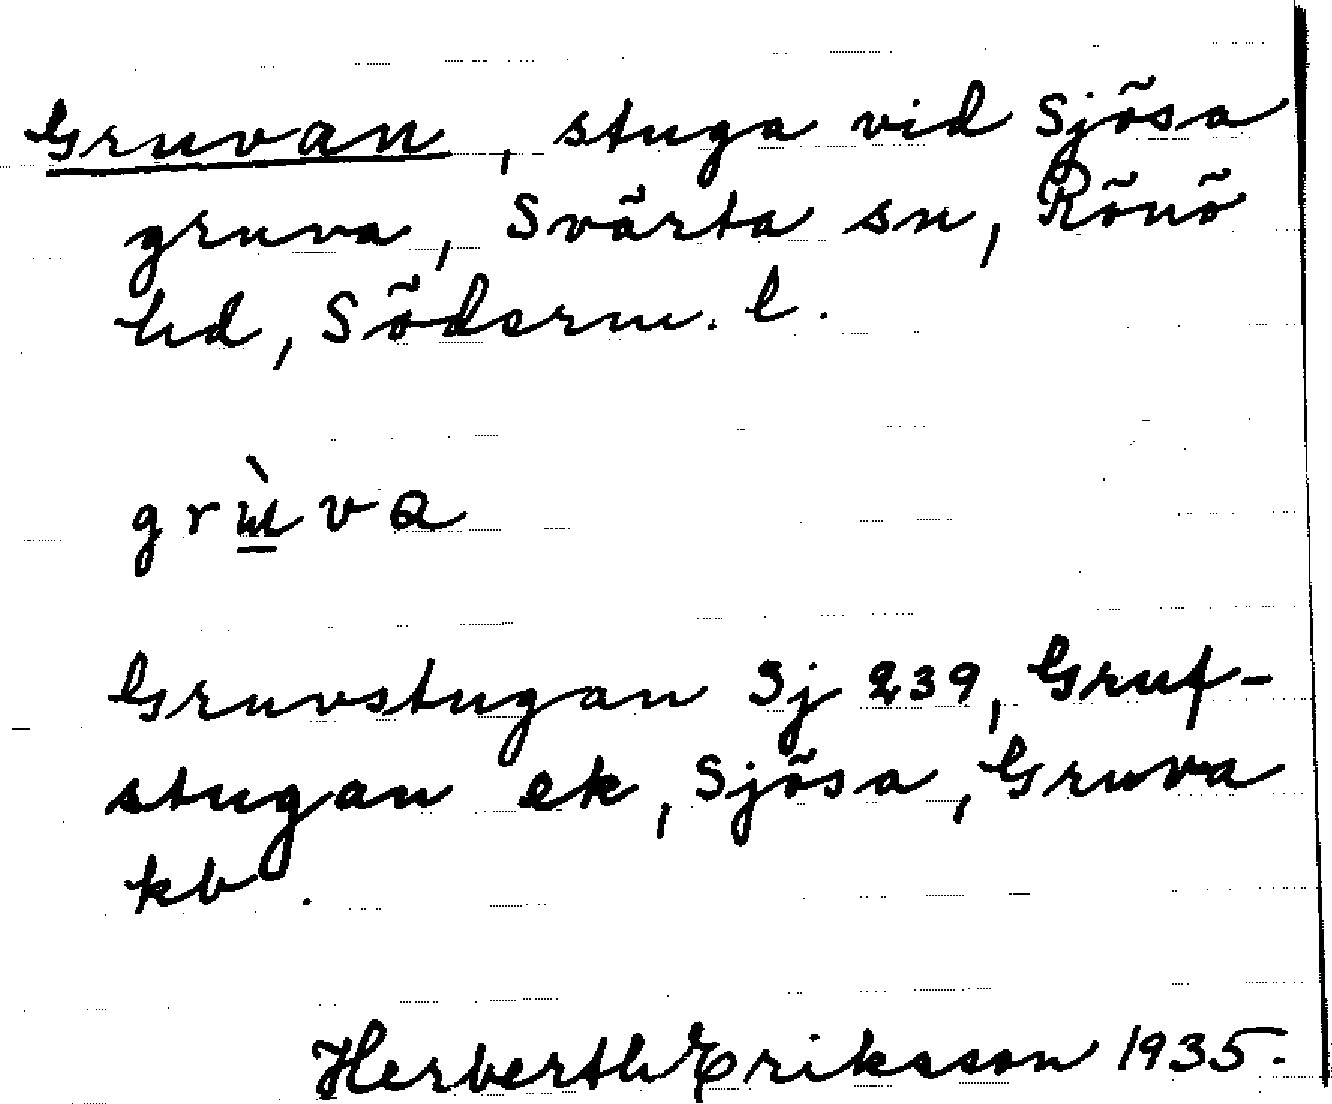 Gruvan, stuga vid Sjösa
gruva, Svärta sn, Rönö
hd, Söderm. l.
grɯ̲̀va
Gruvstugan Sj 239, Gruf-
stugan ek, Sjösa, Gruva
kb.
Herberth Eriksson 1935.